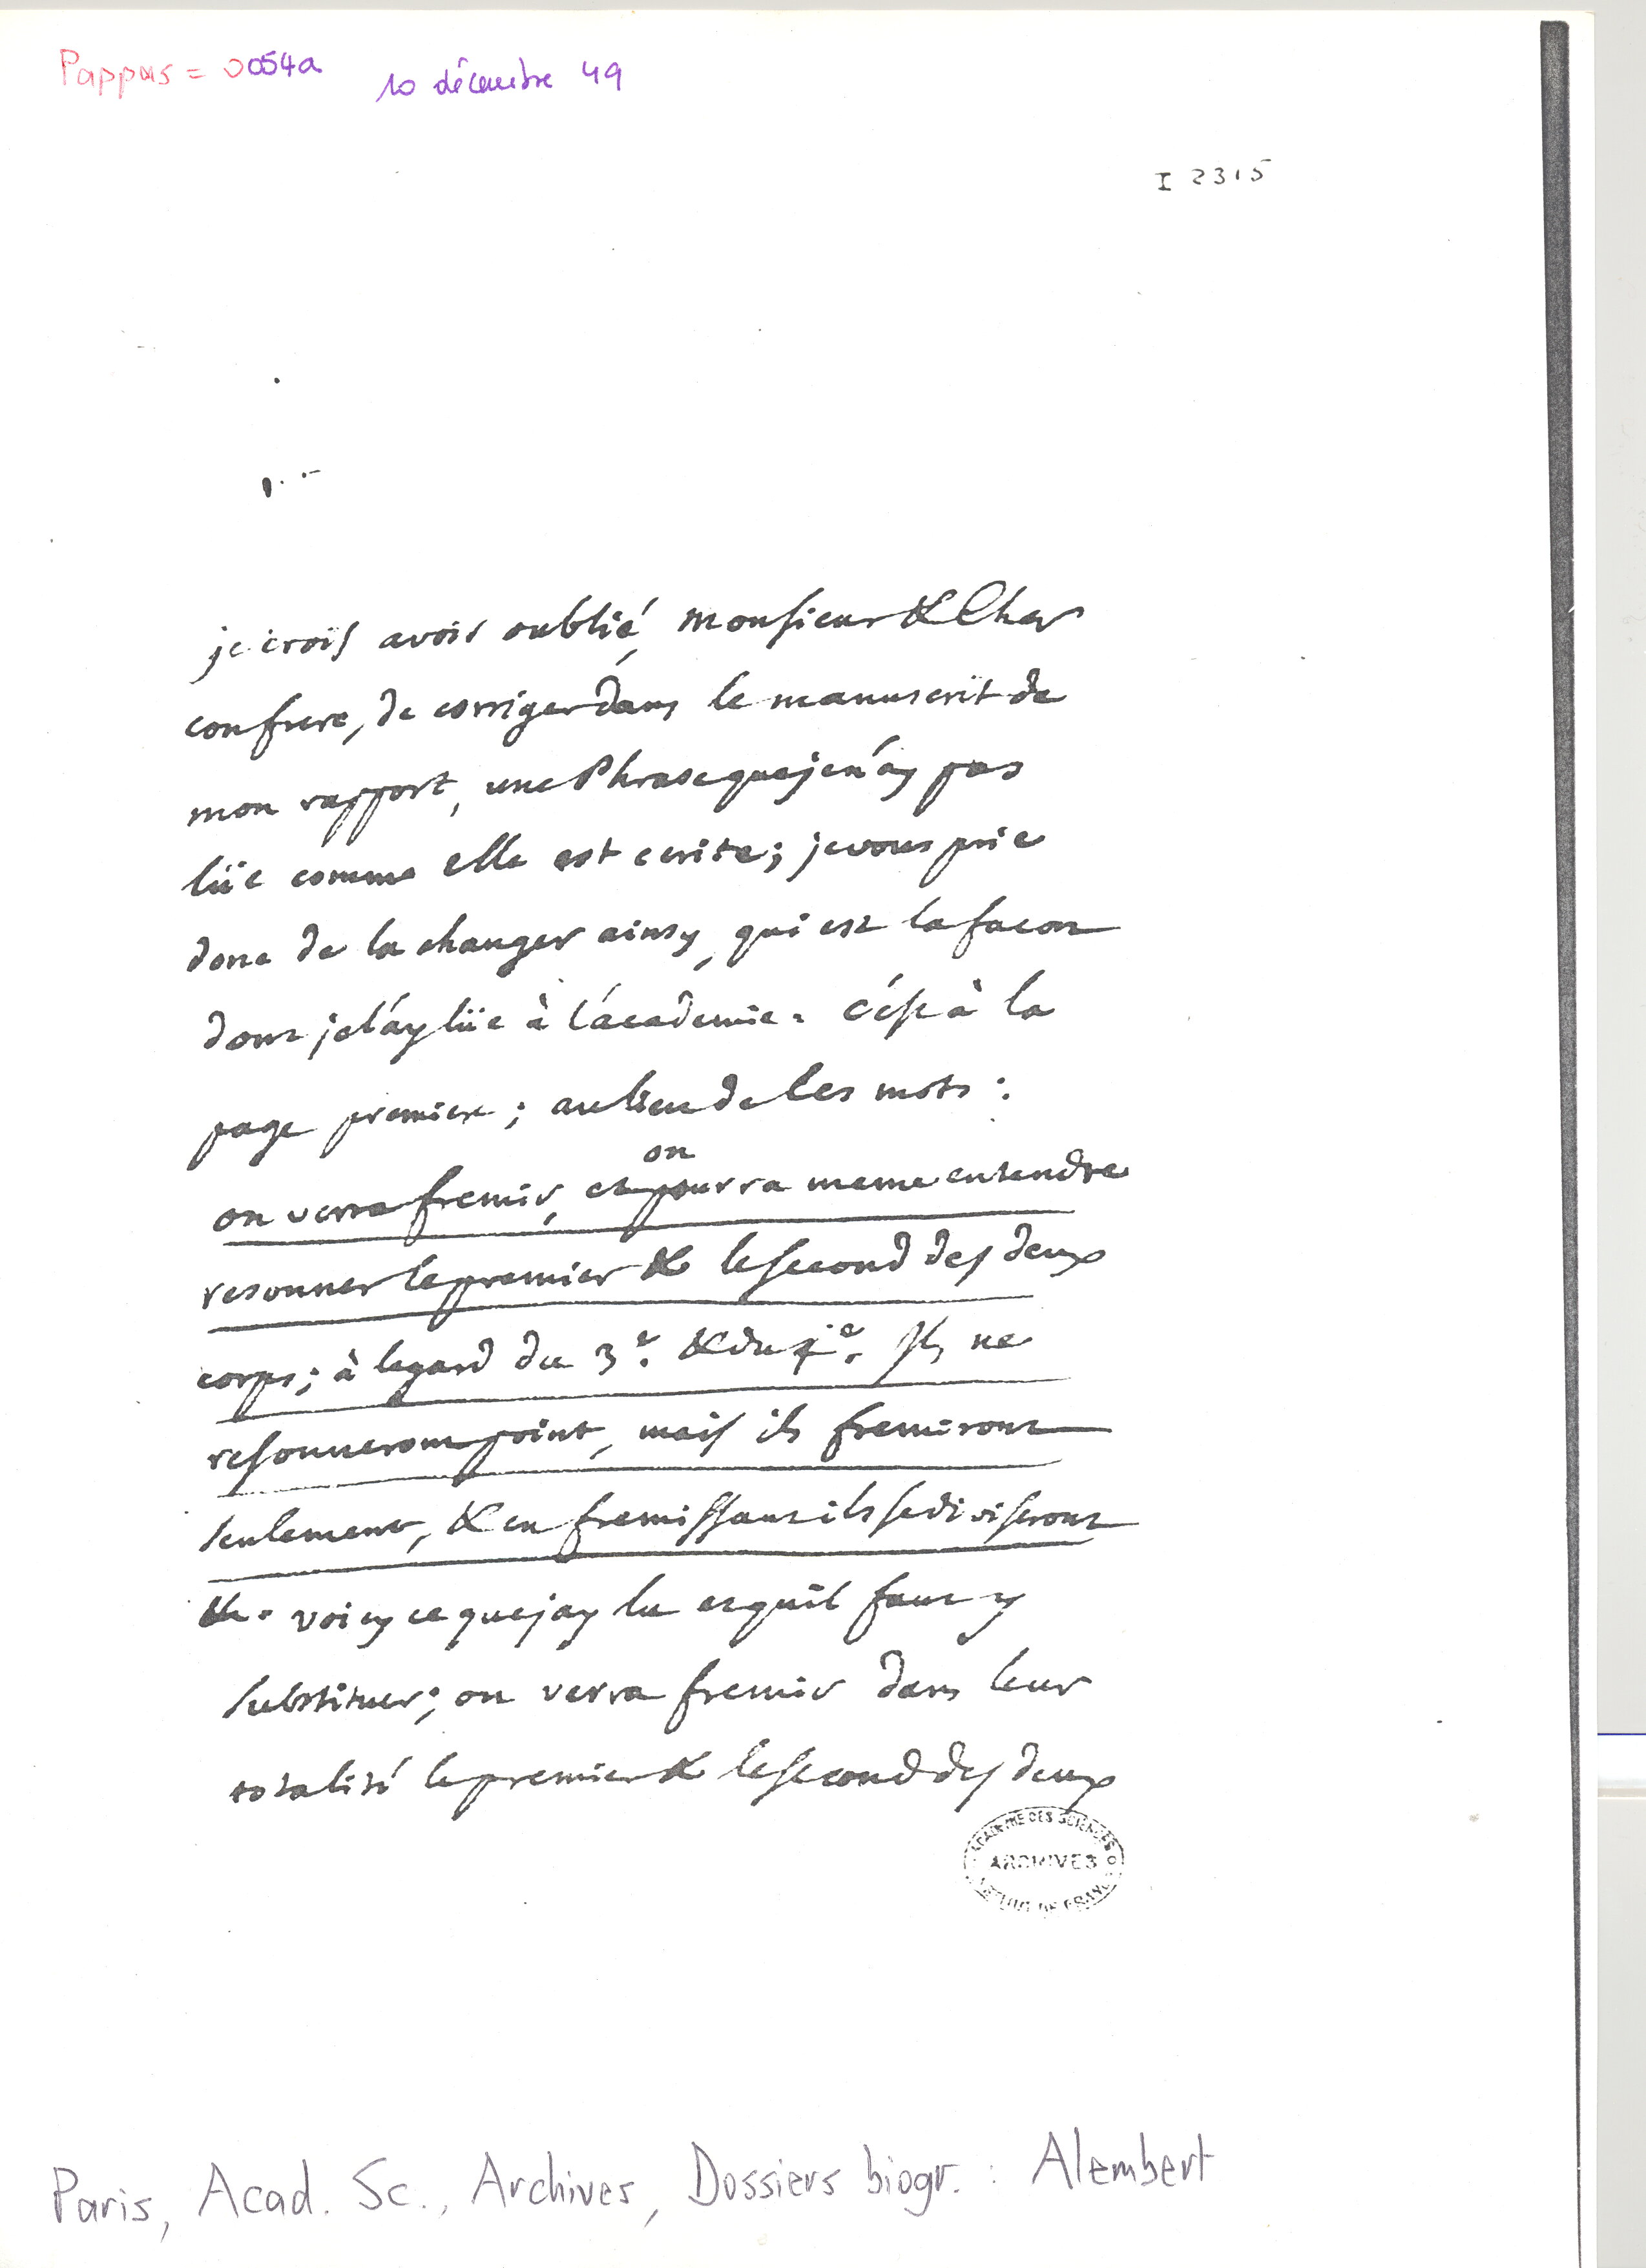 Pappas = 0054a
10 décembre 49
I 2315
je crois avoir oublié, monsieur & Cher
confrere, de corriger dans le manuscrit de
mon rapport, une Phrase que je n'ay pas
lüe comme elle est ecrite; je vous prie
donc de la changer ainsy, qui est la facon
dont je l'ay lüe à l'academie. c'est à la
page premiere; au lieu de Ces mots :
on
on verra fremir, et pourra meme entendre
resonner le premier & le second des deux
corps; à legard du 3e. & du 4e. Ils ne
resonneront point, mais ils fremiront
seulement, & en fremissant ils se diviseront
&c. voicy ce que jay lu et qu'il faut y
substituer; on verra fremir dans leur
totalité le premier & le second des deux
ACADEMIE DES SCIENCES
ARCHIVES
INSTITUT DE FRANCE
Paris, Acad. Sc., Archives, Dossiers biogr. : Alembert